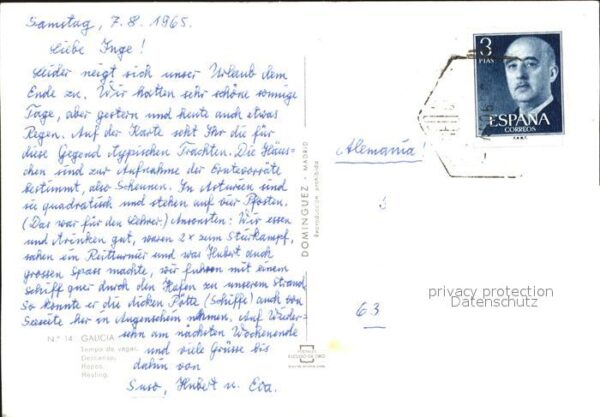 Samstag, 7.8.1965.
Liebe Inge!
Leider neigt sich unser Urlaub dem
Ende zu. Wir hatten sehr schöne sonnige
Tage, aber gestern und heute auch etwas
Regen. Auf der Karte seht Ihr die für
diese Gegend typischen Trachten. Die Häus-
chen sind zur Aufnahme der Erntevorräte
bestimmt, also Scheunen. In Asturien sind
sie quadratisch und stehen auf vier Pfosten.
(Das war für den Lehrer.) Ansonsten: Wir essen
und trinken gut, waren 2x zum Stierkampf,
sahen ein Reitturnier und was Hubert auch
grossen Spass machte, wir fuhren mit einem
Schiff quer durch den Hafen zu unserem Strand.
So konnte er die dicken Pötte (Schiffe) auch von
Seeseite her in Augenschein nehmen. Auf Wieder-
sehn am nächsten Wochenende
und viele Grüsse bis
dahin von
Hubert u. Eva.
N.º 14 GALICIA
Tempo de vagar.
Descanso.
Repos.
Resting.
DOMINGUEZ - MADRID
Reproducción prohibida
3
PTAS
ESPAÑA
CORREOS
F.N.M.T.
Alemania!
63
privacy protection
Datenschutz